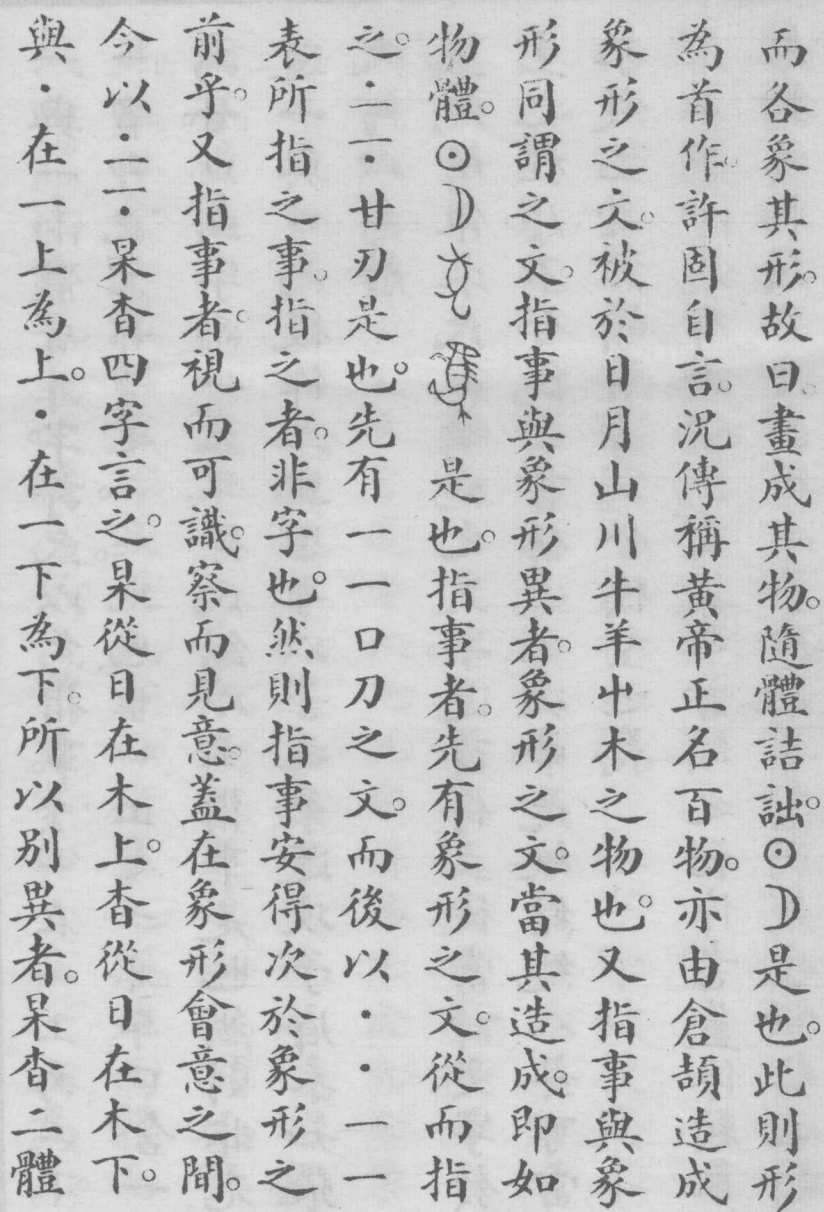 而各象其形。故曰。畫成其物。隨體詰詘。⊙☽是也。此則形
為首作。許固自言。況傳稱黃帝正名百物。亦由倉頡造成
象形之文。被於日月山川牛羊屮木之物也。又指事與象
形同謂之文。指事與象形異者。象形之文。當其造成。即如
物體。⊙☽是也。指事者。先有象形之文。從而指
之。𠄞𠄟甘刃是也。先有一一口刀之文。而後以・・一一
表所指之事。指之者。非字也。然則指事安得次於象形之
前乎。又指事者。視而可識。察而見意。蓋在象形會意之間。
今以𠄞𠄟杲杳四字言之。杲從日在木上。杳從日在木下。
與・在一上為上。・在一下為下。所以別異者。杲杳二體